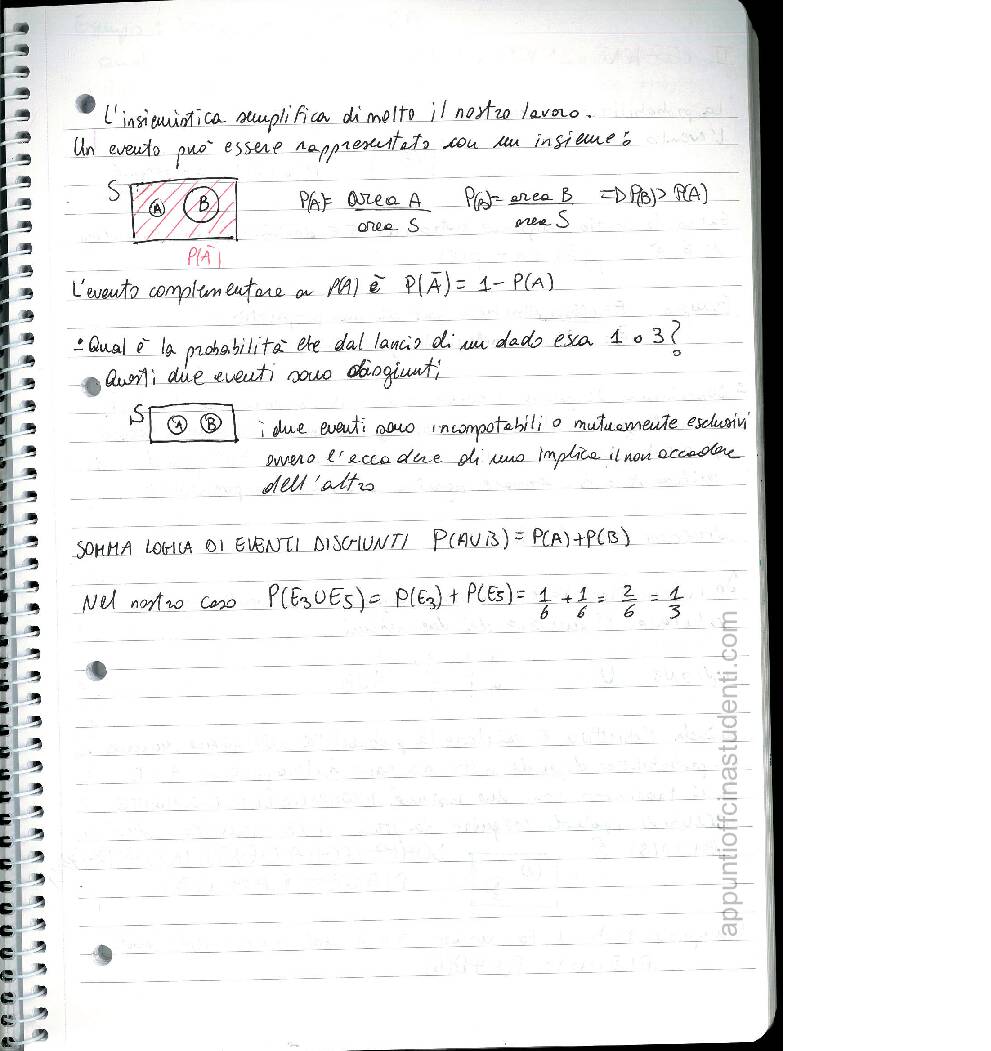 L'insiemistica semplifica di molto il nostro lavoro.
Un evento può essere rappresentato con un insieme:
S A B P(A)= area A / area S P(B)= area B / area S => P(B)> P(A)
P(Ā)
L'evento complementare a P(A) è P(Ā) = 1 - P(A)
- Qual è la probabilità che dal lancio di un dado esca 1 o 3?
Questi due eventi sono disgiunti
S A B i due eventi sono incompatibili o mutuamente esclusivi
ovvero l'accadere di uno implica il non accadere
dell'altro
SOMMA LOGICA DI EVENTI DISGIUNTI P(A∪B) = P(A)+P(B)
Nel nostro caso P(E3∪E5) = P(E3) + P(E5) = 1/6 + 1/6 = 2/6 = 1/3
appuntioffcinastudenti.com